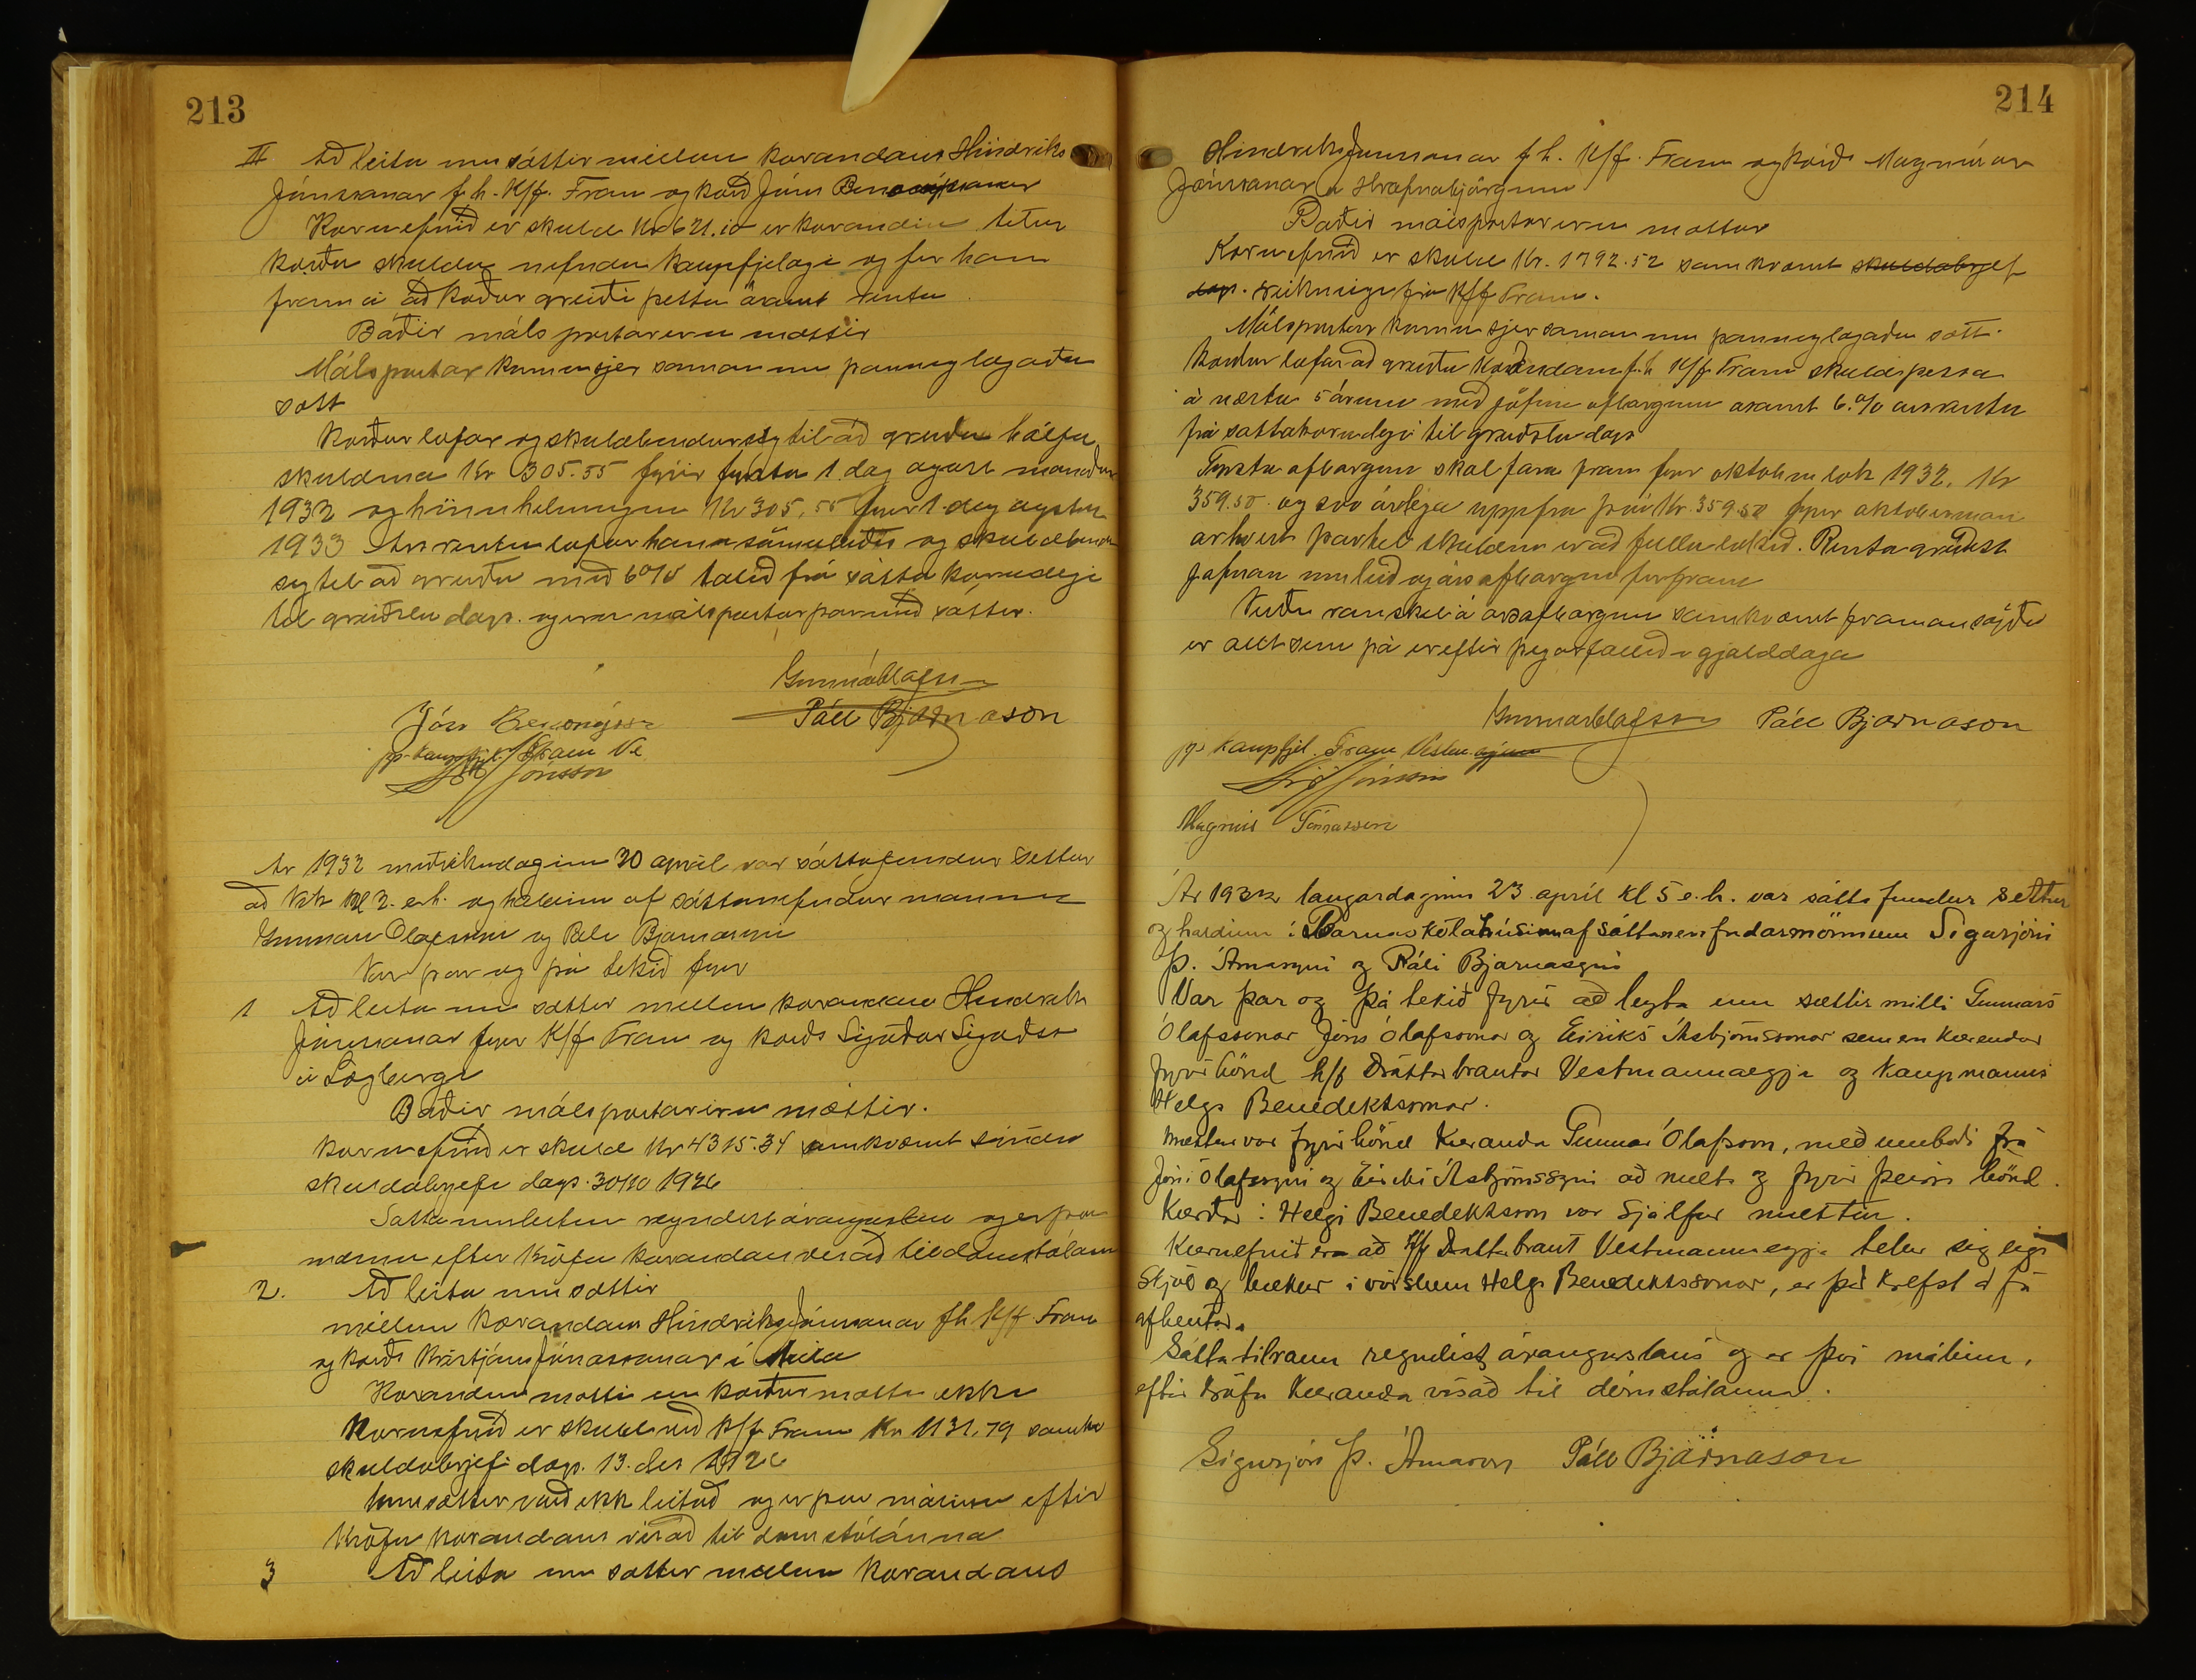 213
II Að leita um sáttir millum kærandans Hindriks
Jónssonar f.h. K/f. Fram og kærð Jóns Benonýssonar
Kæruefnið er skuld Kr 621.10 er kærandin telur
kærðu skulda nefndu kaupfjelagi og fer hann
fram á að kærður greiði þetta ásamt rentu
Báðir málspartar eru mættir
Málspartar komu sjer saman um þannig lagaða
sátt
Kærður lofar og skuldbindur sig til að greiða hálfa
skuldina Kr 305.55 fyrir fyrsta 1. dag ágúst mánaðar
1932 og hinn helmingin Kr 305,55 fyrir 1. dag ágústm
1933 Ársrentu lofar hann sömuleiðis og skuldbindr
sig til að greiða með 6% talið frá sátta kærudegi
til greiðslu dags. og eru málspartar þar með sáttir.
Gunnar Ólafsson
Jón Benonýsson Páll Bjarnason
pp. Kaupfjel. Fram Ve
Jónsson
Ár 1932 miðvikudaginn 20 apríl var sáttafundur settur
að Vík kl 2. e.h. og haldinn af sáttanefndar mönnum
Gunnari Ólafssyni og Páli Bjarnasyni
Var þar og þá tekið fyrir
1 Að leita um sættir millum kærandans Hindriks
Jónssonar fyrir K/f Fram og kærðs Sigurðar Sigurðss
á Lögbergi
Báðir málspartar eru mættir.
Kæruefnið er skuld Kr 4315.34 samkvæmt
skuldabrjefi dags. 30/10 1926
Sáttaumleitun reyndist árangurslaus og er þvi
málinu eftir kröfu kærandans vísað til dómstólana
2. Að leita um sættir
millum kærandans Hindriks Jónssonar fh K/f. Fram
og kærðs Kristjáns Jónassonar í
Kærandinn mætti en kærður mætti ekki
Kæruefnið er skuld við K/f Fram Kr 1131.79 samkv
skuldabrjefi dags. 13. des 1926
Um sættir varð ekki leitað og er þvi málinu eftir
kröfu kærandans vísað til dómstólánna
3 Að leita um sættir millum kærandans
214
Hindriks Jónssonar f.h. K/f. Fram og kærðs Magnúsar
Jónssonar á Hrafnabjörgum
Báðir málspartar eru mættir
Kæruefnið er skuld Kr. 1792.52 samkvæmt skuldabrjef
dags. reikningi frá K/f Fram.
Málspartar komu sjer saman um þannig lagaða sátt.
Kærður lofar að greiða kærandanum f.h K/f Fram skuld þessa
á næstu 5 árum með jöfnum afborgunum ásamt 6.% ársrentu
frá sáttakærudegi til greiðslu dags
Fyrsta afborgun skal fara fram fyrir október lok 1932. Kr
359.50. og svo árlega uppfra því Kr. 359.50 fyrir októberman
ár hvert þar til skuldin er að fullu lokið. Renta greiðist
jafnan um leið og ársafborgun fer fram
Verði vanskil á ársafborgun samkvæmt framansögðu
er allt sem þá er eftir þegar fallið í gjalddaga
Gunnar Ólafsson Páll Bjarnason
pp Kaupfjel. Fram Vestm.eyjum
Jónsson
Magnús
Ár 1932 laugardaginn 23 apríl kl 5 e.h. var sátta fundur settur
og haldinn í Barnaskólahúsinu af sáttanefndarmönnum Sigurjóni
Þ. Árnasyni og Páli Bjarnasyni
Var þar og þá tekið fyrir að leyta um sættir milli Gunnars
Ólafssonar Jóns Ólafssonar og Eiríks Ásbjörnssonar sem eru kærendur
fyrir hönd h/f Dráttarbrautar Vestmannaeyja og kaupmanns
Helga Benediktssonar.
Mættur var fyrir hönd kæranda Gunnar Ólafsson, með umboði frá
Jóni Ólafssyni og Eiríki Ásbjörnssyni að mæta og fyrir þeirra hönd.
Kærður: Helgi Benediktsson var sjálfur mættur.
Kæruefnið er að H/f Dráttarbraut Vestmannaeyja telur sig eiga
skjöl og bækur í vörslum Helga Benediktssonar, er það krefst að fá
afhentar.
Sáttatilraun reyndist árangurslaus og er því málinu,
eftir kröfu kæranda vísað til dómstólanna.
Sigurjón Þ. Árnason Páll Bjarnason